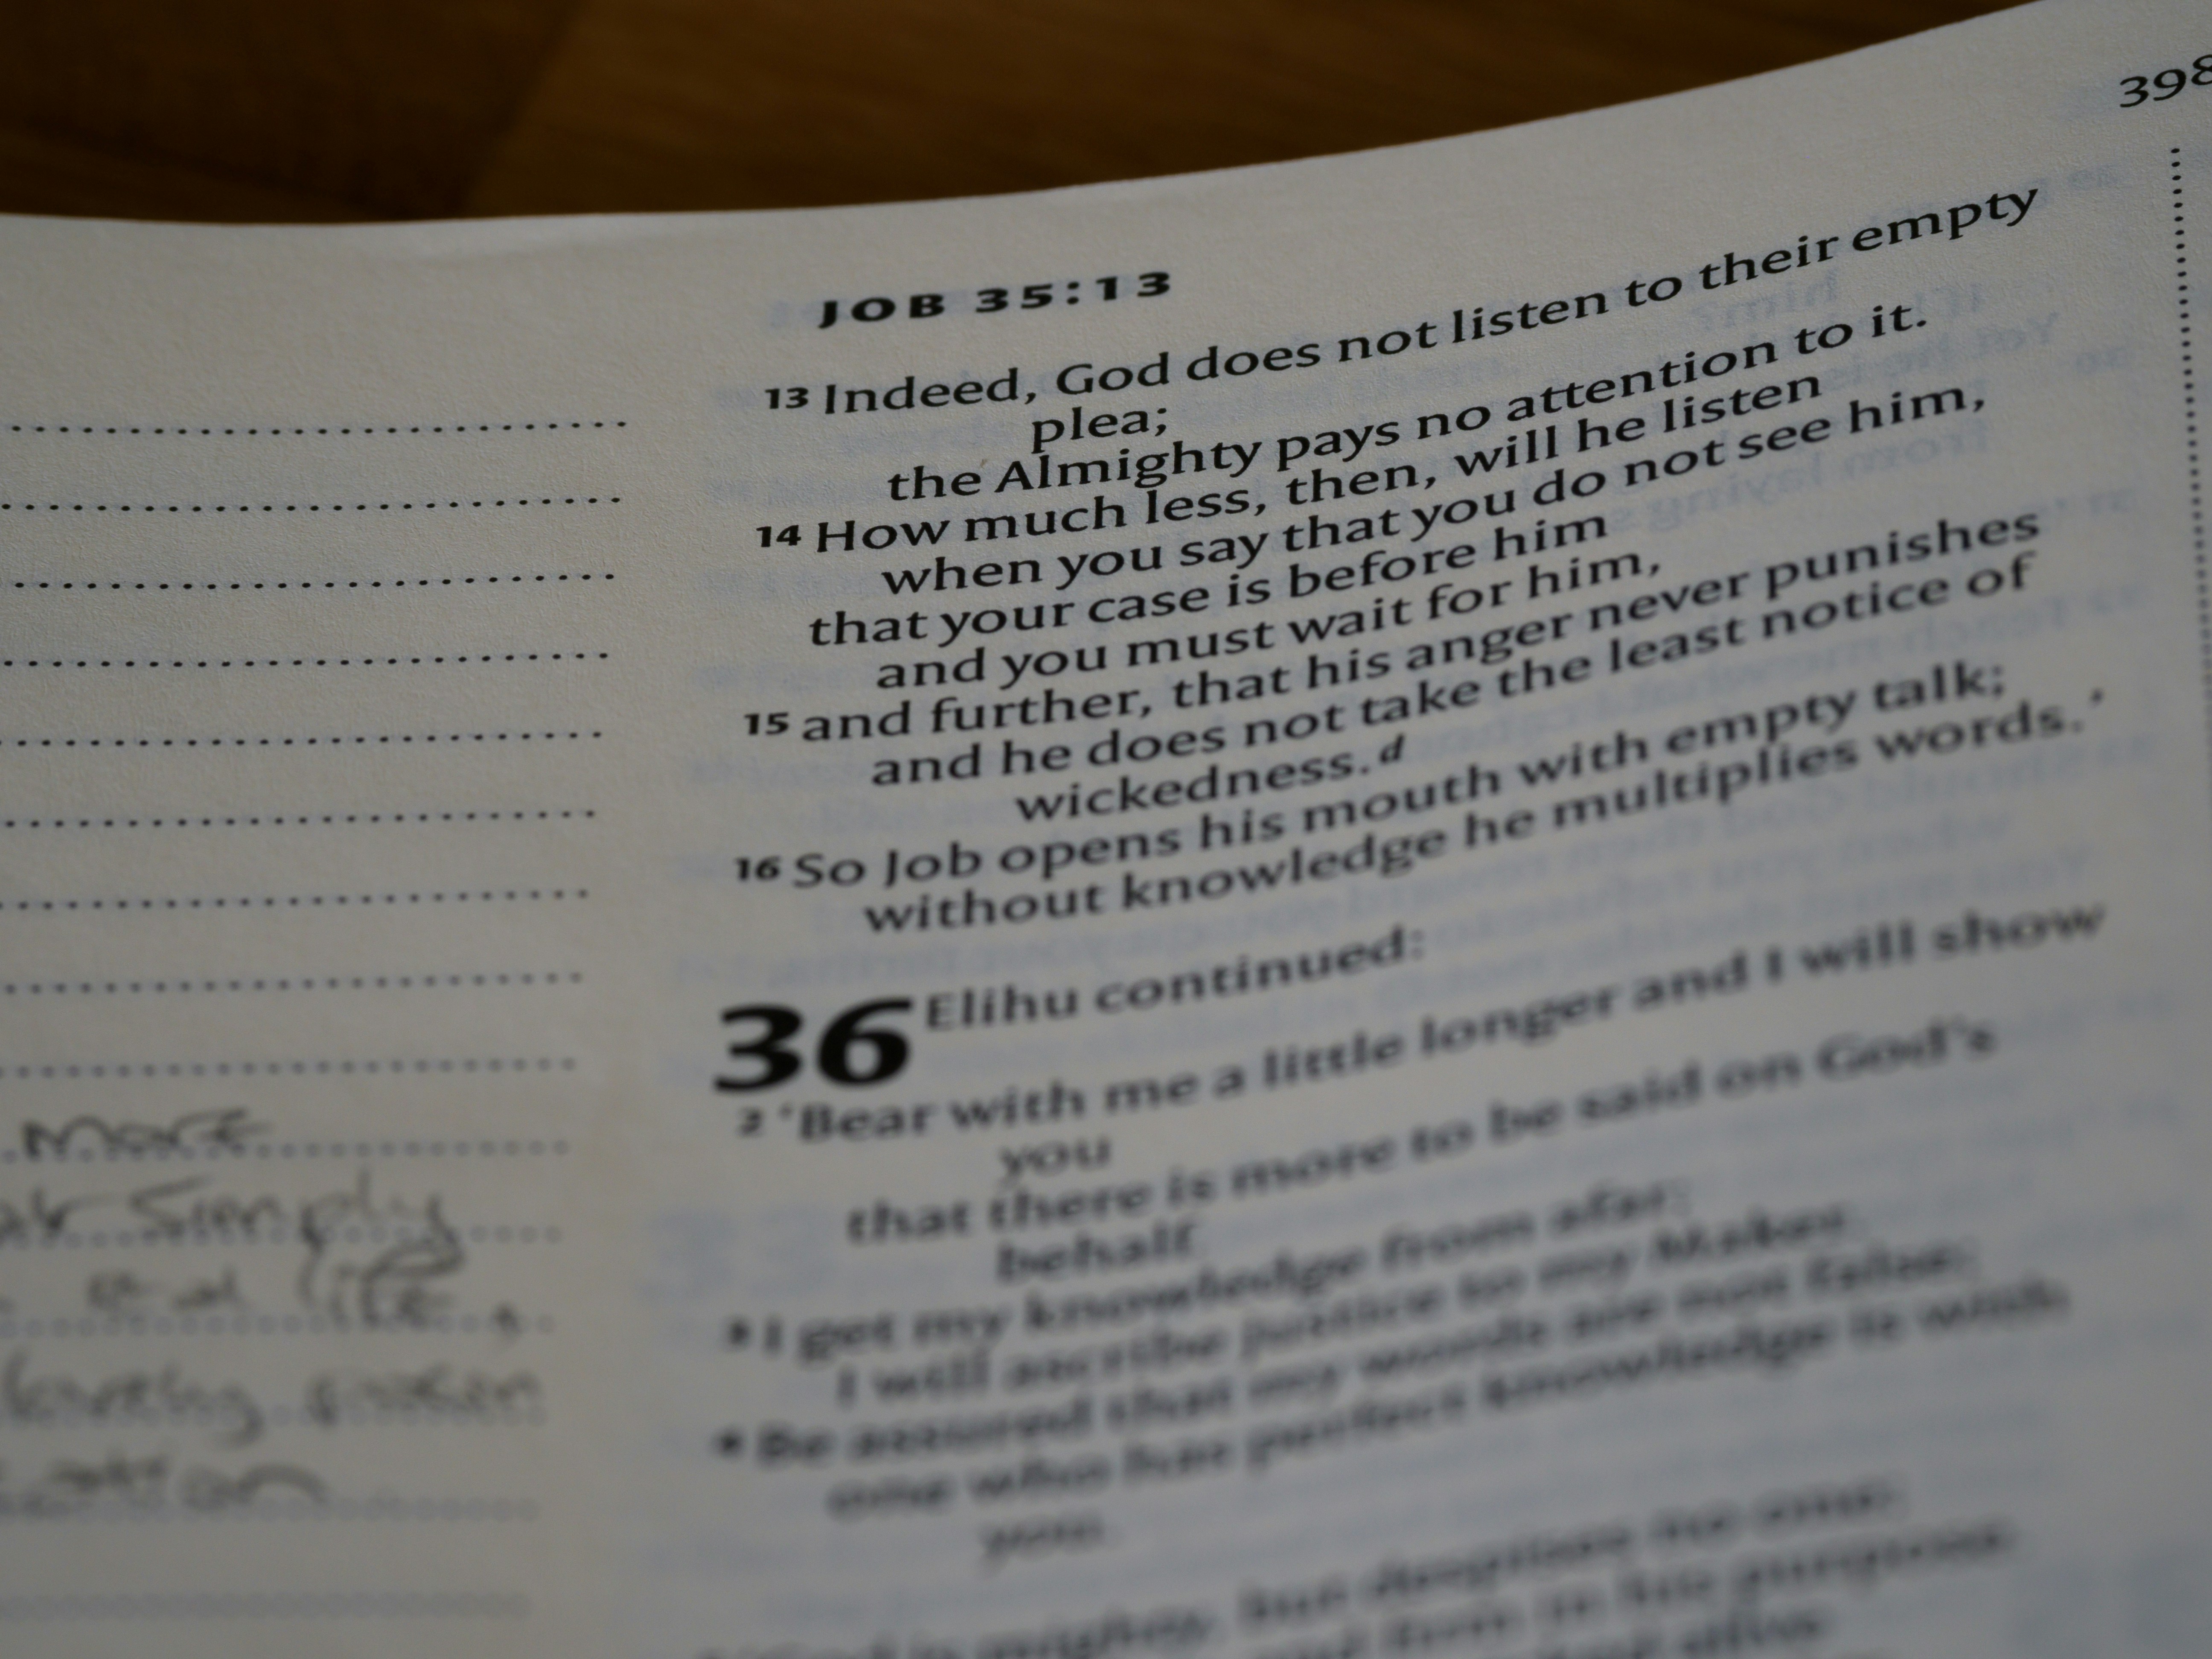 398
JOB 35:13
13 Indeed, God does not listen to their empty
plea;
the Almighty pays no attention to it.
14 How much less, then, will he listen
when you say that you do not see him,
that your case is before him
and you must wait for him,
15 and further, that his anger never punishes
and he does not take the least notice of
wickedness.d
16 So Job opens his mouth with empty talk;
without knowledge he multiplies words.’
36 Elihu continued:
2 ‘Bear with me a little longer and I will show
you
that there is more to be said on God’s
behalf.
3 I get my knowledge from afar;
I will ascribe justice to my Maker.
4 Be assured that my words are not false;
one who has perfect knowledge is with
you.
mighty, but despises no one;
firm in his purpose.
alive
more
Simply
life,